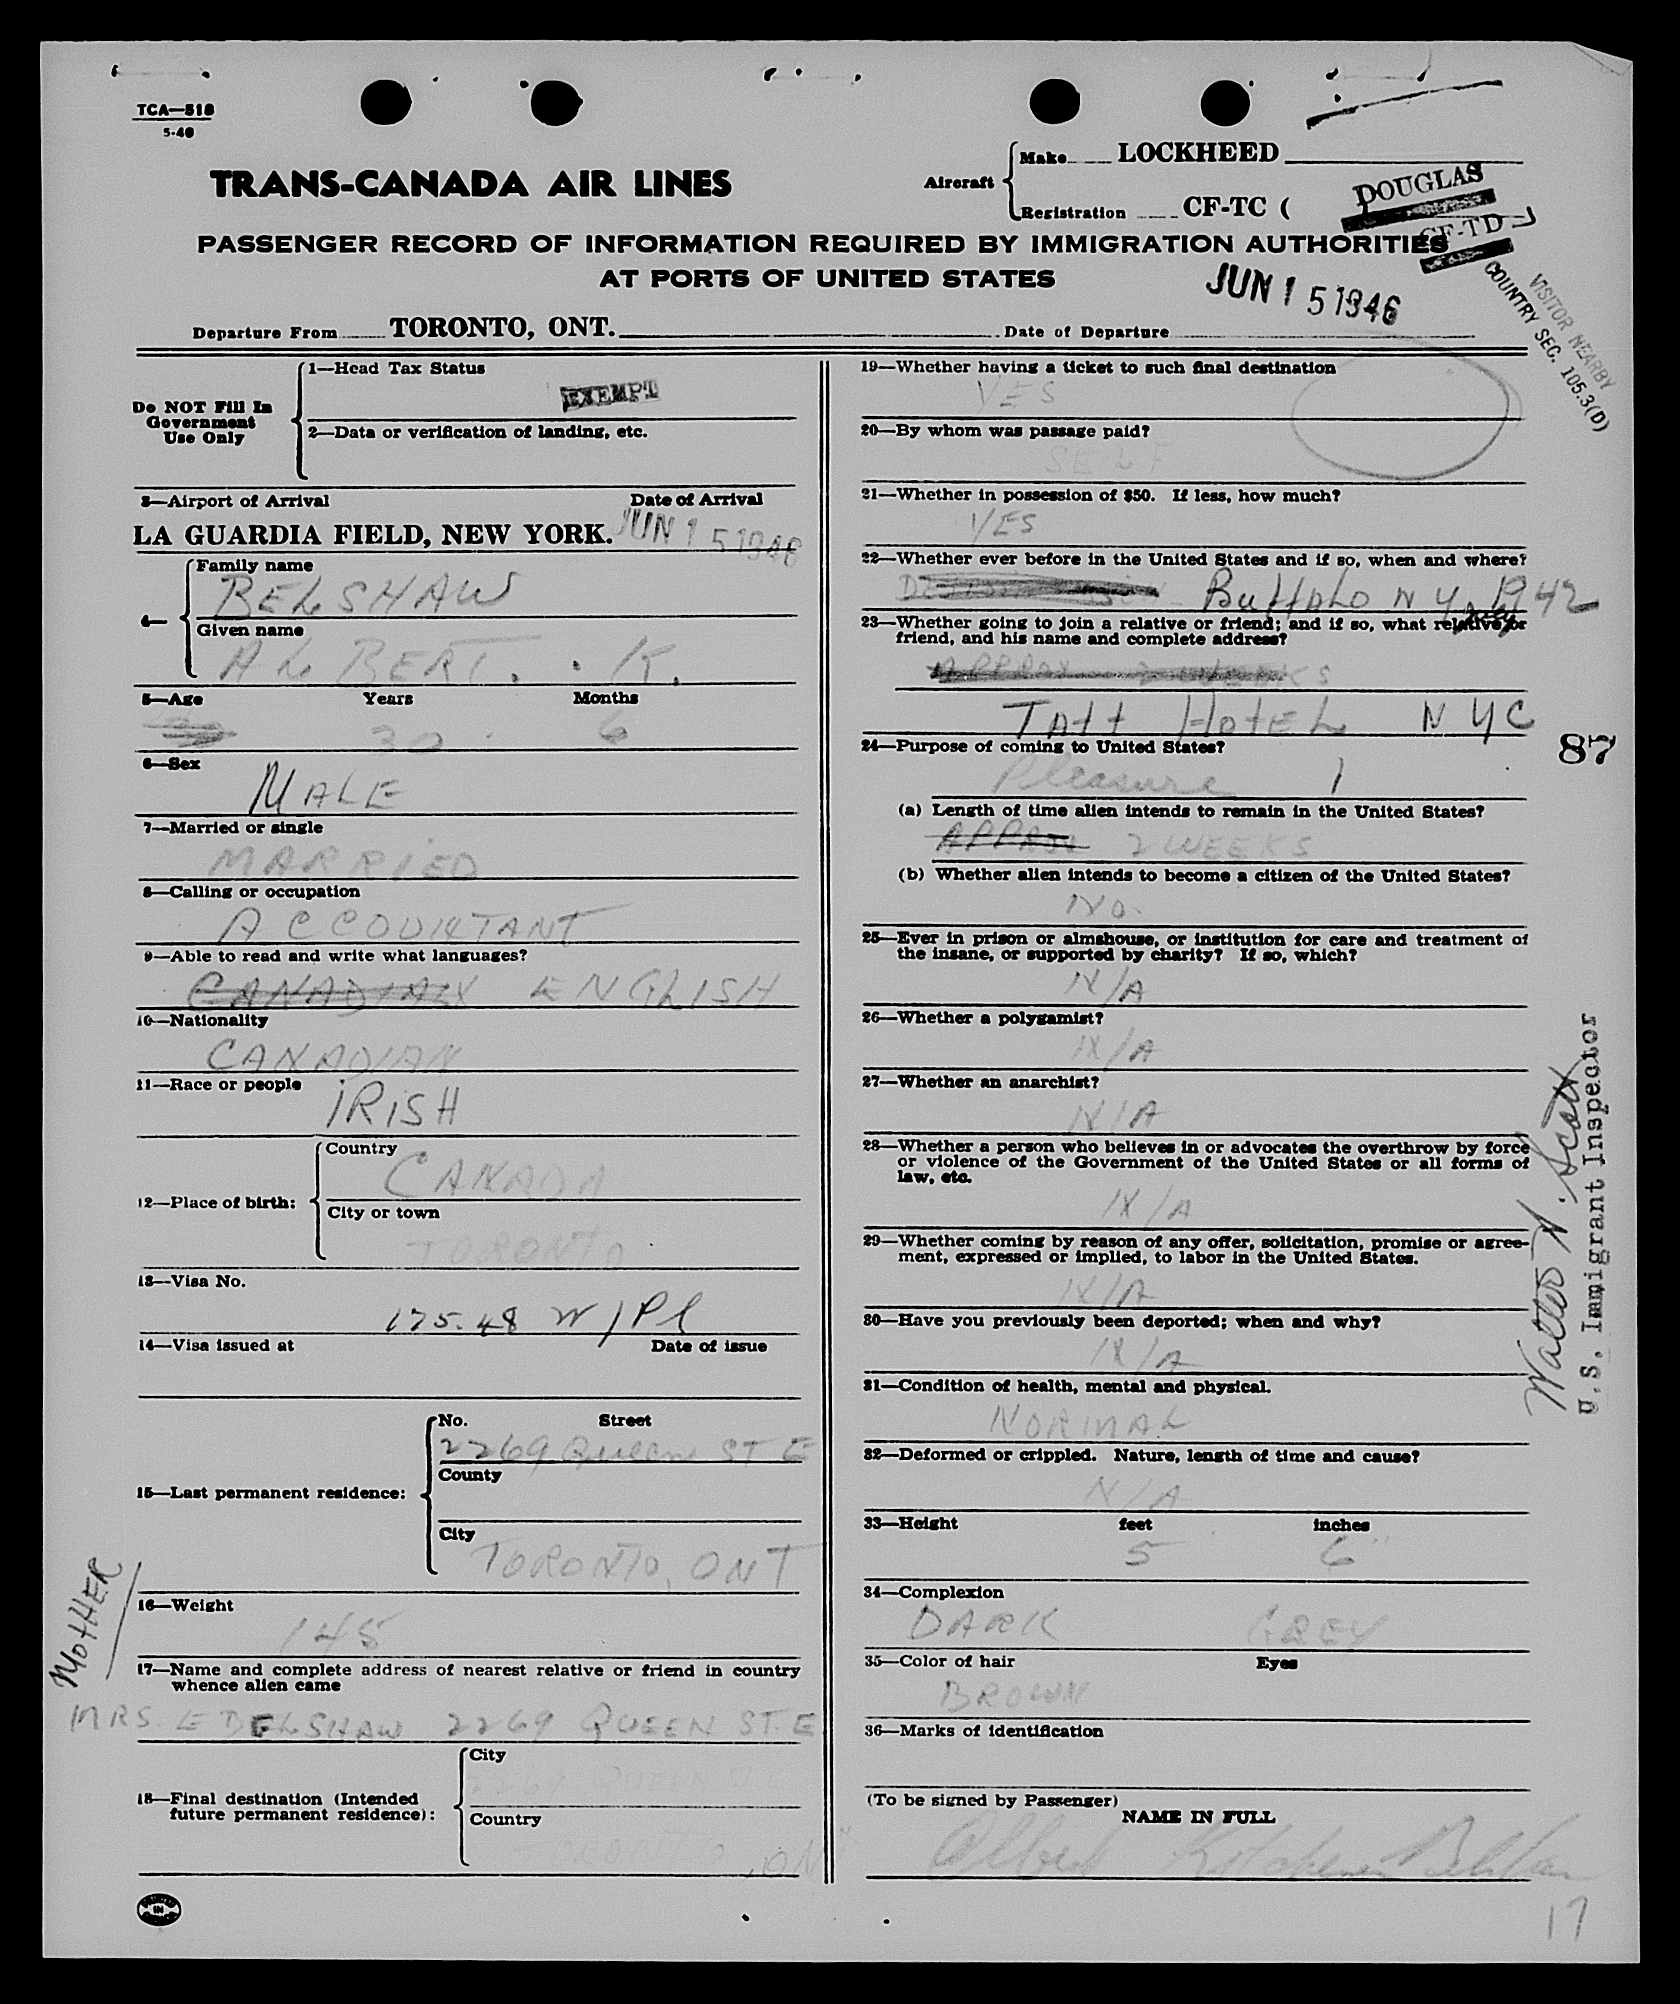 TCA—518
5-40
TRANS-CANADA AIR LINES
Aircraft
Make LOCKHEED
Registration CF-TC (
DOUGLAS
CF-TD
PASSENGER RECORD OF INFORMATION REQUIRED BY IMMIGRATION AUTHORITIES
AT PORTS OF UNITED STATES
JUN 15 1946
VISITOR NEARBY
COUNTRY SEC. 105.3(D)
Departure From TORONTO, ONT. Date of Departure
Do NOT Fill In
Government
Use Only
1—Head Tax Status
EXEMPT
2—Data or verification of landing, etc.
3—Airport of Arrival Date of Arrival
LA GUARDIA FIELD, NEW YORK. JUN 15 1946
4—
Family name
BELSHAW
Given name
ALBERT. K.
5—Age Years Months
30 6
6—Sex
MALE
7—Married or single
MARRIED
8—Calling or occupation
ACCOUNTANT
9—Able to read and write what languages?
CANADIAN ENGLISH
10—Nationality
CANADIAN
11—Race or people
IRISH
12—Place of birth:
Country
CANADA
City or town
TORONTO
13—Visa No.
175.48 W/Pl
14—Visa issued at Date of issue
15—Last permanent residence:
No. Street
2269 Queen ST E
County
City
TORONTO, ONT
MOTHER
16—Weight
145
17—Name and complete address of nearest relative or friend in country
whence alien came
MRS. E BELSHAW 2269 QUEEN ST. E
18—Final destination (Intended
future permanent residence):
City
2269 QUEEN
Country
TORONTO, ON
19—Whether having a ticket to such final destination
YES
20—By whom was passage paid?
SELF
21—Whether in possession of $50. If less, how much?
YES
22—Whether ever before in the United States and if so, when and where?
Buffalo N Y 1942
23—Whether going to join a relative or friend; and if so, what relative or
friend, and his name and complete address?
APPROX 2 WEEKS
Taft Hotel NYC
24—Purpose of coming to United States?
Pleasure
87
(a) Length of time alien intends to remain in the United States?
APPROX 2 WEEKS
(b) Whether alien intends to become a citizen of the United States?
NO.
25—Ever in prison or almshouse, or institution for care and treatment of
the insane, or supported by charity? If so, which?
N/A
26—Whether a polygamist?
N/A
27—Whether an anarchist?
N/A
28—Whether a person who believes in or advocates the overthrow by force
or violence of the Government of the United States or all forms of
law, etc.
N/A
29—Whether coming by reason of any offer, solicitation, promise or agree-
ment, expressed or implied, to labor in the United States.
N/A
30—Have you previously been deported; when and why?
N/A
31—Condition of health, mental and physical.
NORMAL
32—Deformed or crippled. Nature, length of time and cause?
N/A
33—Height feet inches
5 6"
34—Complexion
DARK GREY
35—Color of hair Eyes
BROWN
36—Marks of identification
(To be signed by Passenger)
NAME IN FULL
Albert Kitchener Belshaw
17
Walter N. Scott
U.S. Immigrant Inspector